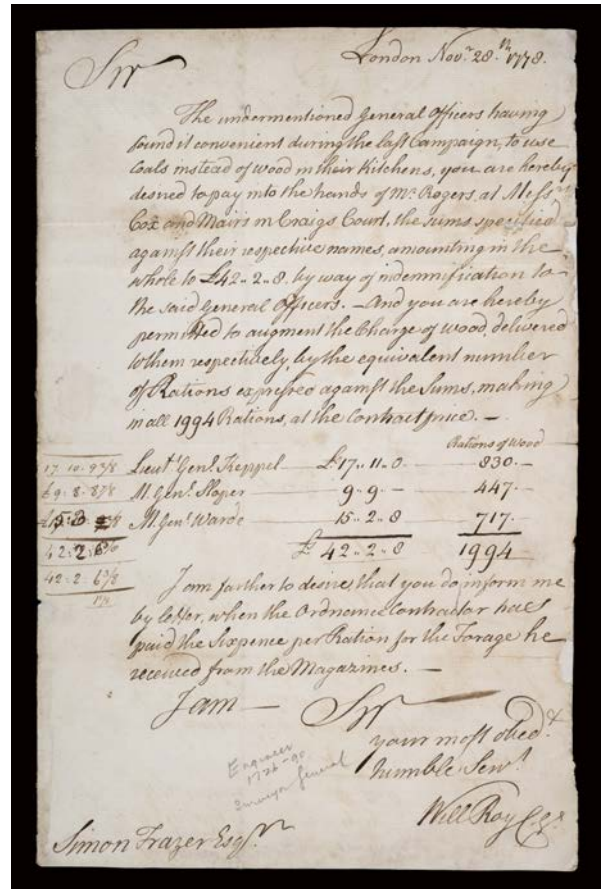 London Nov.r 28.th 1778.
Sir
The undermentioned General Officers having
found it convenient during the last Campaign, to use
Coals instead of Wood in their Kitchens, you are hereby
desired to pay into the hands of Mr. Rogers, at Mess.rs
Cox and Mairs in Craigs Court, the sums specified
against their respective names, amounting in the
whole to £42..2..8. by way of indemnification to
the said General Officers. — And you are hereby
permitted to augment the Charge of Wood, delivered
to them respectively, by the equivalent number
of Rations expressed against the Sums, making
in all 1994 Rations, at the Contract price. —
Rations of Wood
17 10 9 3/8 Lieut.t Gen.l Keppel — £17..11..0 — 830. —
£9. 8. 8 7/8 M. Gen.l Sloper — 9..9.. — — 447.
M. Gen.l Warde 15..2..8 717.
42:2:6 £ 42..2..8 1994
42:2:6
I am farther to desire, that you do inform me
by letter, when the Ordnance Contractor has
paid the Sixpence per Ration for the Forage he
received from the Magazines. —
I am — Sir
your most obed.t
humble Serv.t
Will Roy
Engineer
1726-90
Surveyor General
Simon Frazer Esq.r